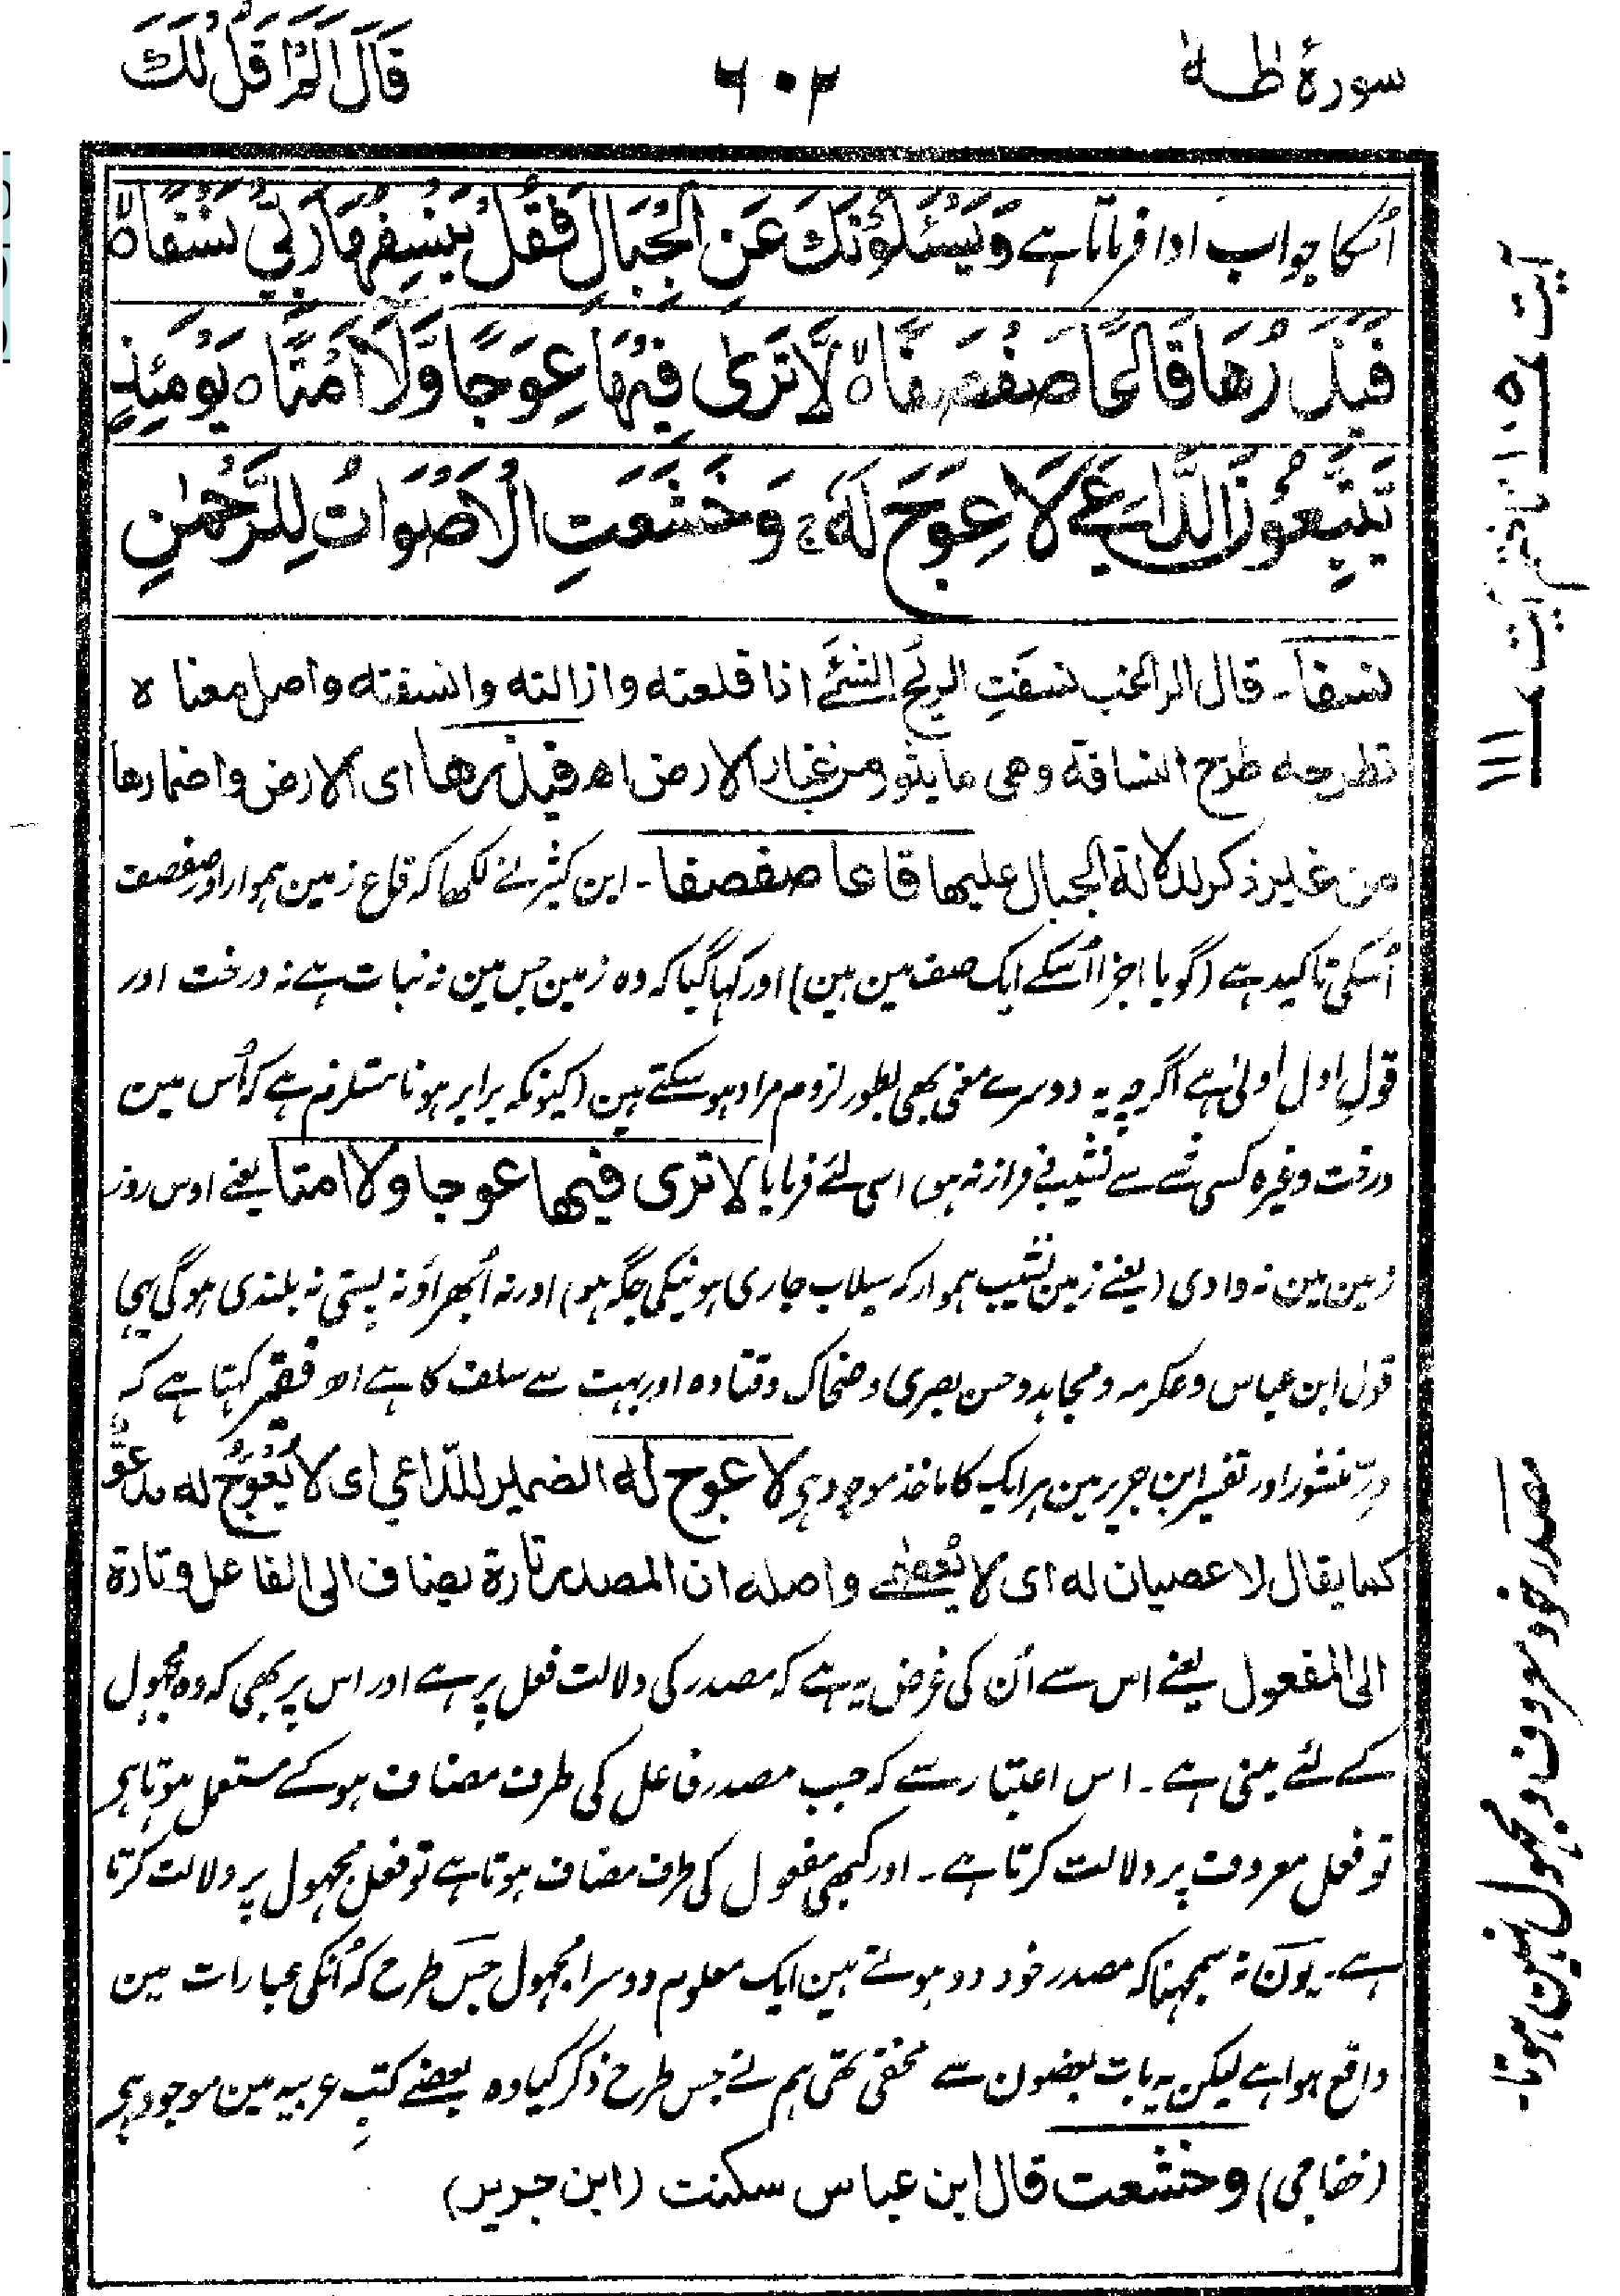 سورۂ طٰہٰ
۶۰۲
قَالَ اَلَمْ اَقُلْ لَّكَ
اُسکا جواب ادا فرماتا ہے وَيَسْـَٔلُوْنَكَ عَنِ الْجِبَالِ فَقُلْ يَنْسِفُهَا رَبِّيْ نَسْفًا ۙ
فَيَذَرُهَا قَاعًا صَفْصَفًا ۙ لَّا تَرٰى فِيْهَا عِوَجًا وَّلَآ اَمْتًا ہ يَوْمَئِذٍ
يَّتَّبِعُوْنَ الدَّاعِيَ لَا عِوَجَ لَهٗ ۚ وَخَشَعَتِ الْاَصْوَاتُ لِلرَّحْمٰنِ
نسفا۔ قال الراغب نسفَتِ الریحُ الشئَے اذا قلعته وازالته وانسفته واصل معناہ
تطرحه طرح النسافة وهی ما یثور من غبار الارض اھ فیذرها ای الارض واضمارها
من غیر ذکر لدلالة الجبال علیها قاعا صفصفا۔ ابن کثیرؒ نے لکھا کہ قاع زمین ہموار اور صفصف
اُسکی تاکید ہے (گویا اجزا اُسکے ایک صف مین ہین) اور کہا گیا کہ وہ زمین جس مین نہ نبات ہے نہ درخت اور
قولِ اول اولیٰ ہے اگرچہ یہ دوسرے معنی بھی بطور لزوم مراد ہوسکتے ہین (کیونکہ برابر ہونا مستلزم ہے کہ اُس مین
درخت وغیرہ کسی شے سے نشیب فراز نہ ہو) اسی لئے فرمایا لا تری فیها عوجا ولا امتا یعنے اوس روز
زمین مین نہ وادی (یعنے زمین نشیب ہموار کہ سیلاب جاری ہونیکی جگہ ہو) اور نہ اُبھراؤ نہ پستی نہ بلندی ہوگی یہی
قول ابن عباس و عکرمہ و مجاہد و حسن بصری و ضحاک و قتادہ اور بہت سے سلف کا ہے اھ فقیر کہتا ہے کہ
درّ منثور اور تفسیر ابن جریر مین ہر ایک کا ماخذ موجود ہی لا عوج له الضمیر للدّاعی ای لا یُعوَجُّ له مدعوٌّ
کما یقال لا عصیان له ای لا یُعصٰے واصله ان المصدر تارة یضاف الی الفاعل وتارة
الی المفعول یعنے اس سے اُن کی غرض یہ ہے کہ مصدر کی دلالت فعل پر ہے اور اس پر بھی کہ وہ مجہول
کے لئے مبنی ہے۔ اس اعتبار سے کہ جب مصدر فاعل کی طرف مضاف ہوکے مستعمل ہوتا ہی
تو فعل معروف پر دلالت کرتا ہے۔ اور کبھی مفعول کی طرف مضاف ہوتا ہے تو فعل مجہول پر دلالت کرتا
ہے۔ یون نہ سمجہنا کہ مصدر خود دو ہوتے ہین ایک معلوم دوسرا مجہول جس طرح کہ اُنکی عبارات مین
واقع ہوا ہے لیکن یہ بات بعضون سے مخفی تھی ہم نے جس طرح ذکر کیا وہ بعضے کتبِ عربیہ مین موجود ہی
(خفاجی) وخشعت قال ابن عباس سکنت (ابن جریر)
آیت ۱۰۵ تا ختم آیت ۱۱۱
مصدر خود معروف و مجہول نہین ہوتا۔